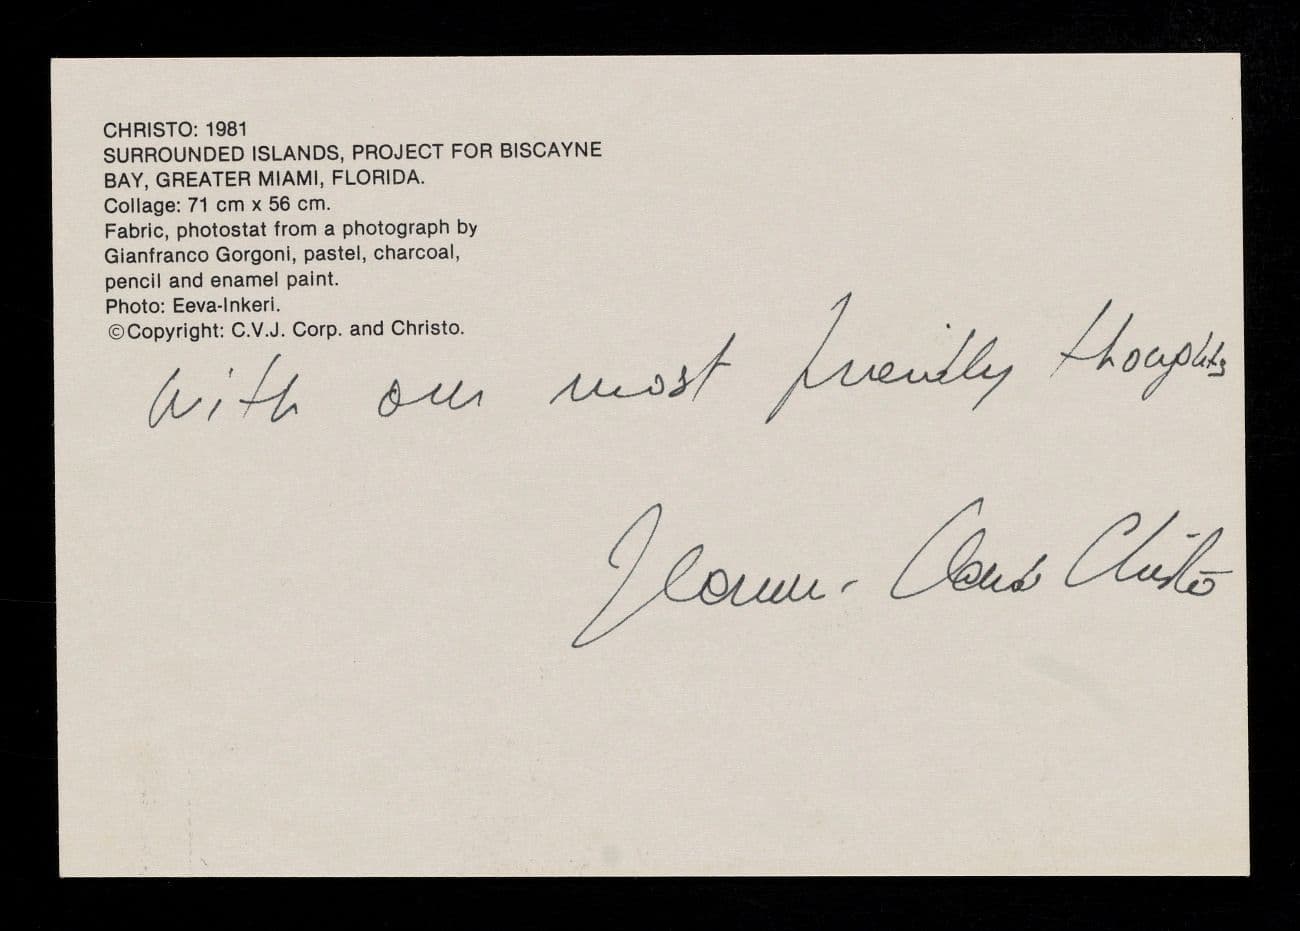 CHRISTO: 1981
SURROUNDED ISLANDS, PROJECT FOR BISCAYNE
BAY, GREATER MIAMI, FLORIDA.
Collage: 71 cm x 56 cm.
Fabric, photostat from a photograph by
Gianfranco Gorgoni, pastel, charcoal,
pencil and enamel paint.
Photo: Eeva-Inkeri.
©Copyright: C.V.J. Corp. and Christo.
With our most friendly thoughts
Jeanne-Claude Christo